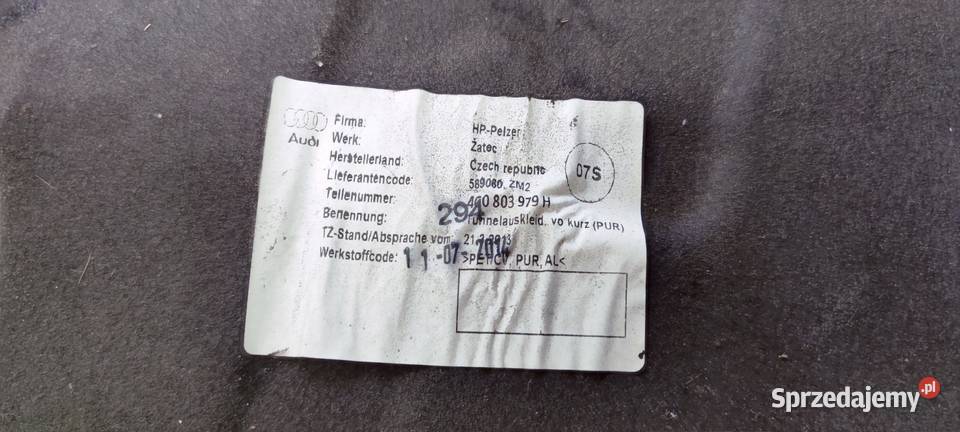 Audi
Firma: HP-Pelzer
Werk: Žatec
Herstellerland: Czech republic
Lieferantencode: 589080, ZM2
Teilenummer: 4G0 803 979 H
Benennung: Tunnelauskleid. vo kurz (PUR)
TZ-Stand/Absprache vom: 21.2.2013
Werkstoffcode: PUR, AL<
07S
294
11-07-2014
Sprzedajemy.pl